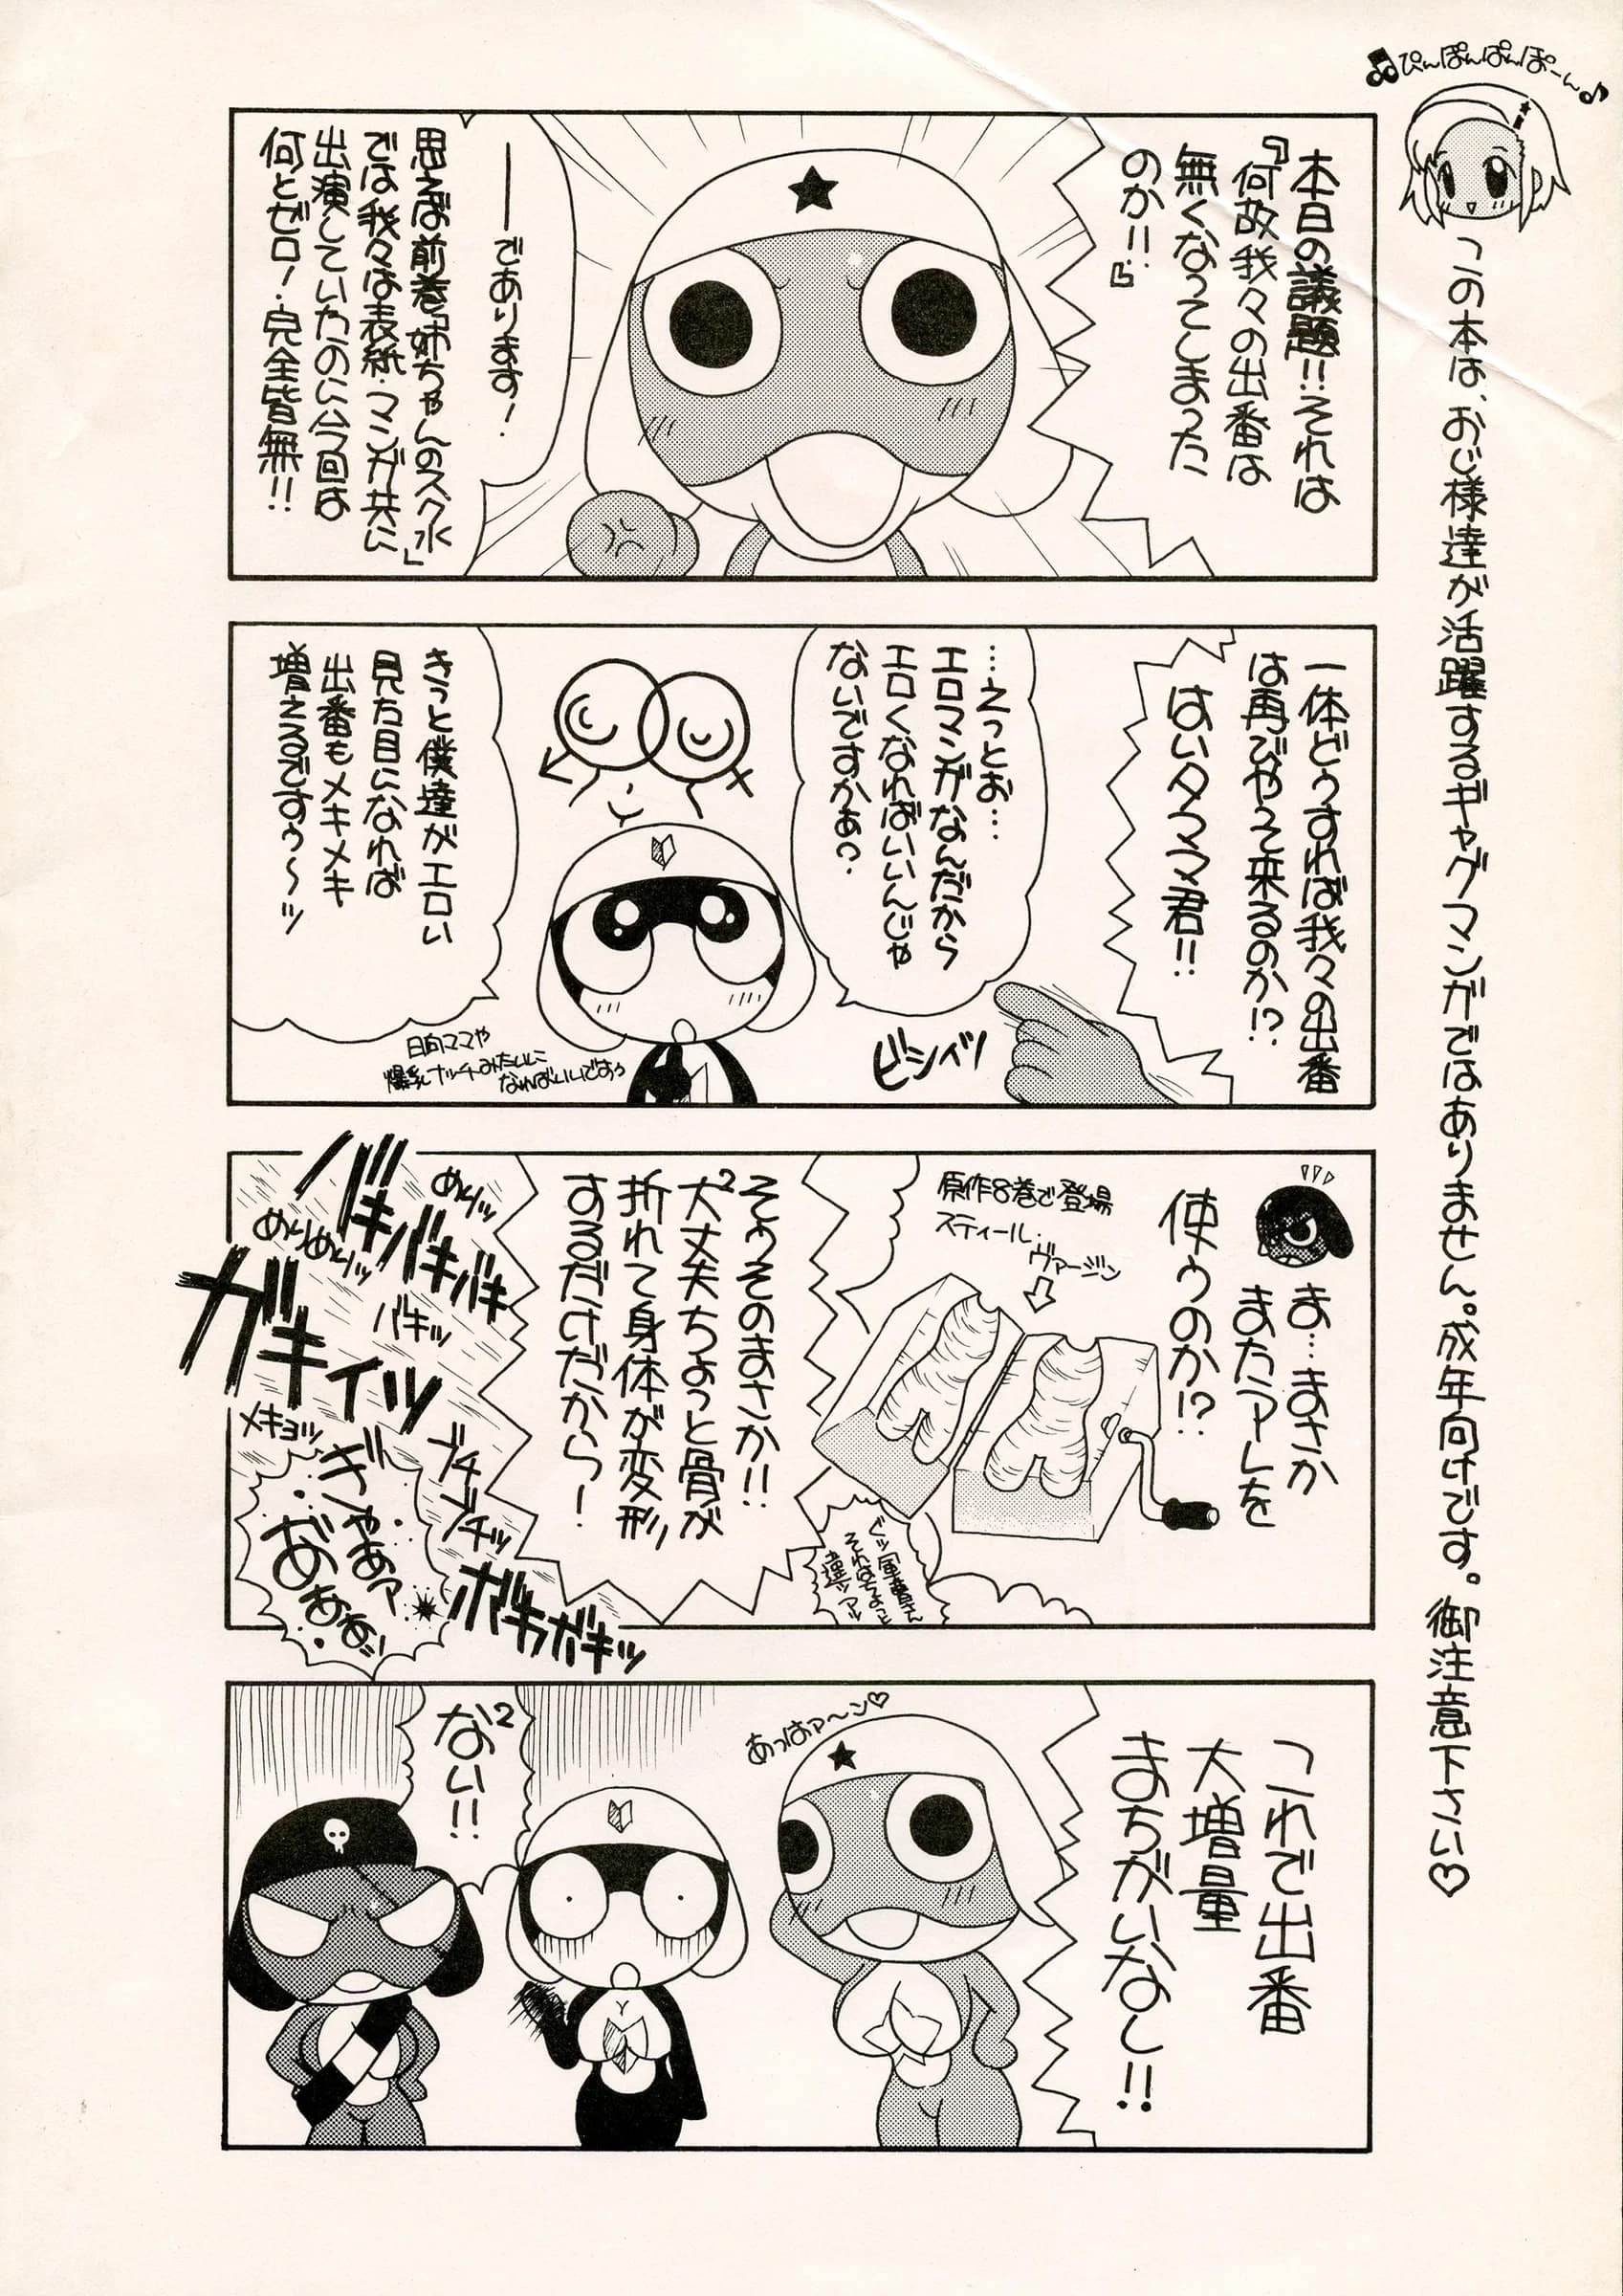 ♪ぴんぽんぱんぽーん♪
この本は、おじ様達が活躍するギャグマンガではありません。成年向けです。御注意下さい♡
本日の議題!!それは
『何故我々の出番は
無くなってしまった
のか!!』
――であります!
思えば前巻「姉ちゃんのスク水」
では我々は表紙・マンガ共に
出演していたのに今回は
何とゼロ!完全皆無!!
一体どぅすれば我々の出番
は再びやって来るのか!?
はいタママ君!!
…えっとぉ…
エロマンガなんだから
エロくなればいいんじゃ
ないですかぁ?
ビシィッ
きっと僕達がエロい
見た目になれば
出番もメキメキ
増えるですぅ〜ッ
日向ママや
爆乳ナッチーみたいに
なればいいですぅ
ま…まさか
またアレを
使ぅのか!?
原作8巻で登場
スティール・
ヴァージン
ぐッ軍曹さん
それはちょっと
違ッアッ
そぅそのまさか!!
大丈夫²ちょっと骨が
折れて身体が変形
するだけだから!
バキバキバキ
めりッ
めりめりッ
バキッ
ガキィッ
メキョッ
ブチブチッ
ぎゃあァ
あああ!!
ボキガキッ
これで出番
大増量
まちがいなし!!
あっはァ〜ン♡
ない²!!